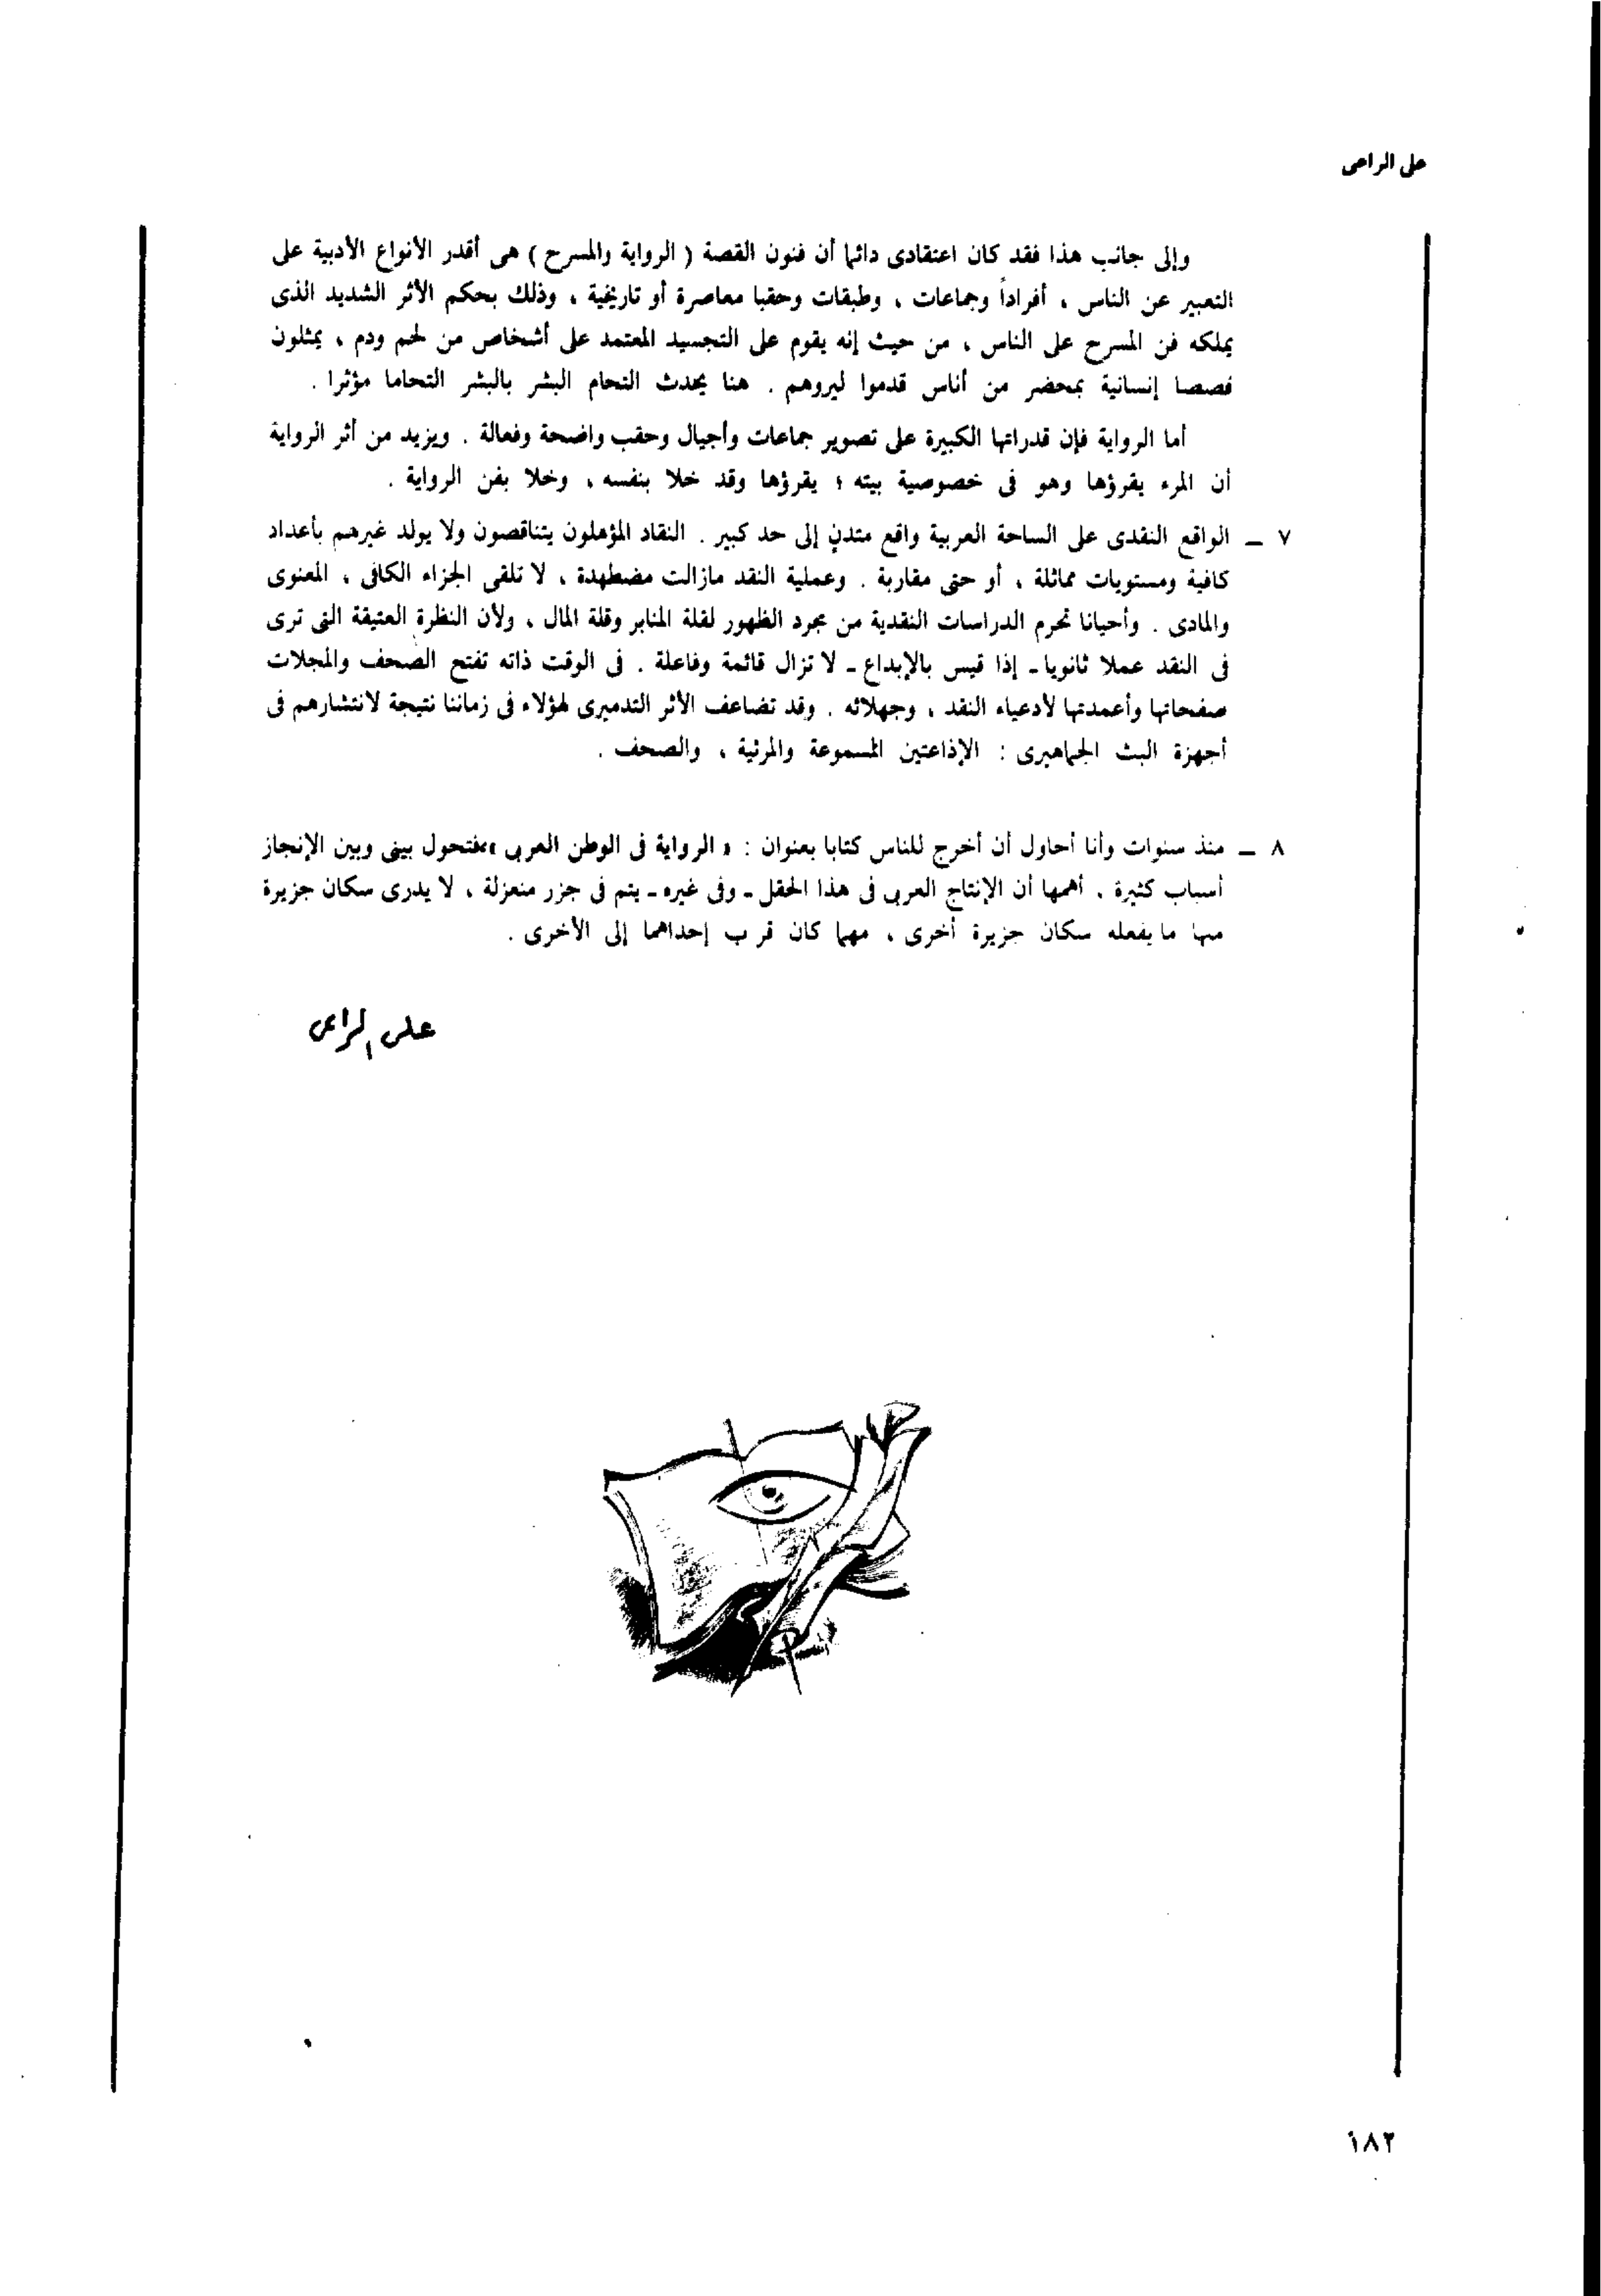 على الراعى
وإلى جانب هذا فقد كان اعتقادى دائما أن فنون القصة ( الرواية والمسرح ) هى أقدر الأنواع الأدبية على
التعبير عن الناس ، أفراداً وجماعات ، وطبقات وحقبا معاصرة أو تاريخية ، وذلك بحكم الأثر الشديد الذى
يملكه فن المسرح على الناس ، من حيث إنه يقوم على التجسيد المعتمد على أشخاص من لحم ودم ، يمثلون
قصصا إنسانية بمحضر من أناس قدموا ليروهم . هنا يحدث التحام البشر بالبشر التحاما مؤثرا .
أما الرواية فإن قدراتها الكبيرة على تصوير جماعات وأجيال وحقب واضحة وفعالة . ويزيد من أثر الرواية
أن المرء يقرؤها وهو فى خصوصية بيته ؛ يقرؤها وقد خلا بنفسه ، وخلا بفن الرواية .
٧ ـ الواقع النقدى على الساحة العربية واقع متدنٍ إلى حد كبير . النقاد المؤهلون يتناقصون ولا يولد غيرهم بأعداد
كافية ومستويات مماثلة ، أو حتى مقاربة . وعملية النقد مازالت مضطهدة ، لا تلقى الجزاء الكافى ، المعنوى
والمادى . وأحيانا تحرم الدراسات النقدية من مجرد الظهور لقلة المنابر وقلة المال ، ولأن النظرة العتيقة التى ترى
فى النقد عملا ثانويا ـ إذا قيس بالإبداع ـ لا تزال قائمة وفاعلة . فى الوقت ذاته تفتح الصحف والمجلات
صفحاتها وأعمدتها لأدعياء النقد ، وجهلائه . وقد تضاعف الأثر التدميرى لهؤلاء فى زماننا نتيجة لانتشارهم فى
أجهزة البث الجماهيرى : الإذاعتين المسموعة والمرئية ، والصحف .
٨ ـ منذ سنوات وأنا أحاول أن أخرج للناس كتابا بعنوان : « الرواية فى الوطن العربى »، فتحول بينى وبين الإنجاز
أسباب كثيرة . أهمها أن الإنتاج العربى فى هذا الحقل ـ وفى غيره ـ يتم فى جزر منعزلة ، لا يدرى سكان جزيرة
منها ما يفعله سكان جزيرة أخرى ، مهما كان قرب إحداهما إلى الأخرى .
على الراعى
١٨٢